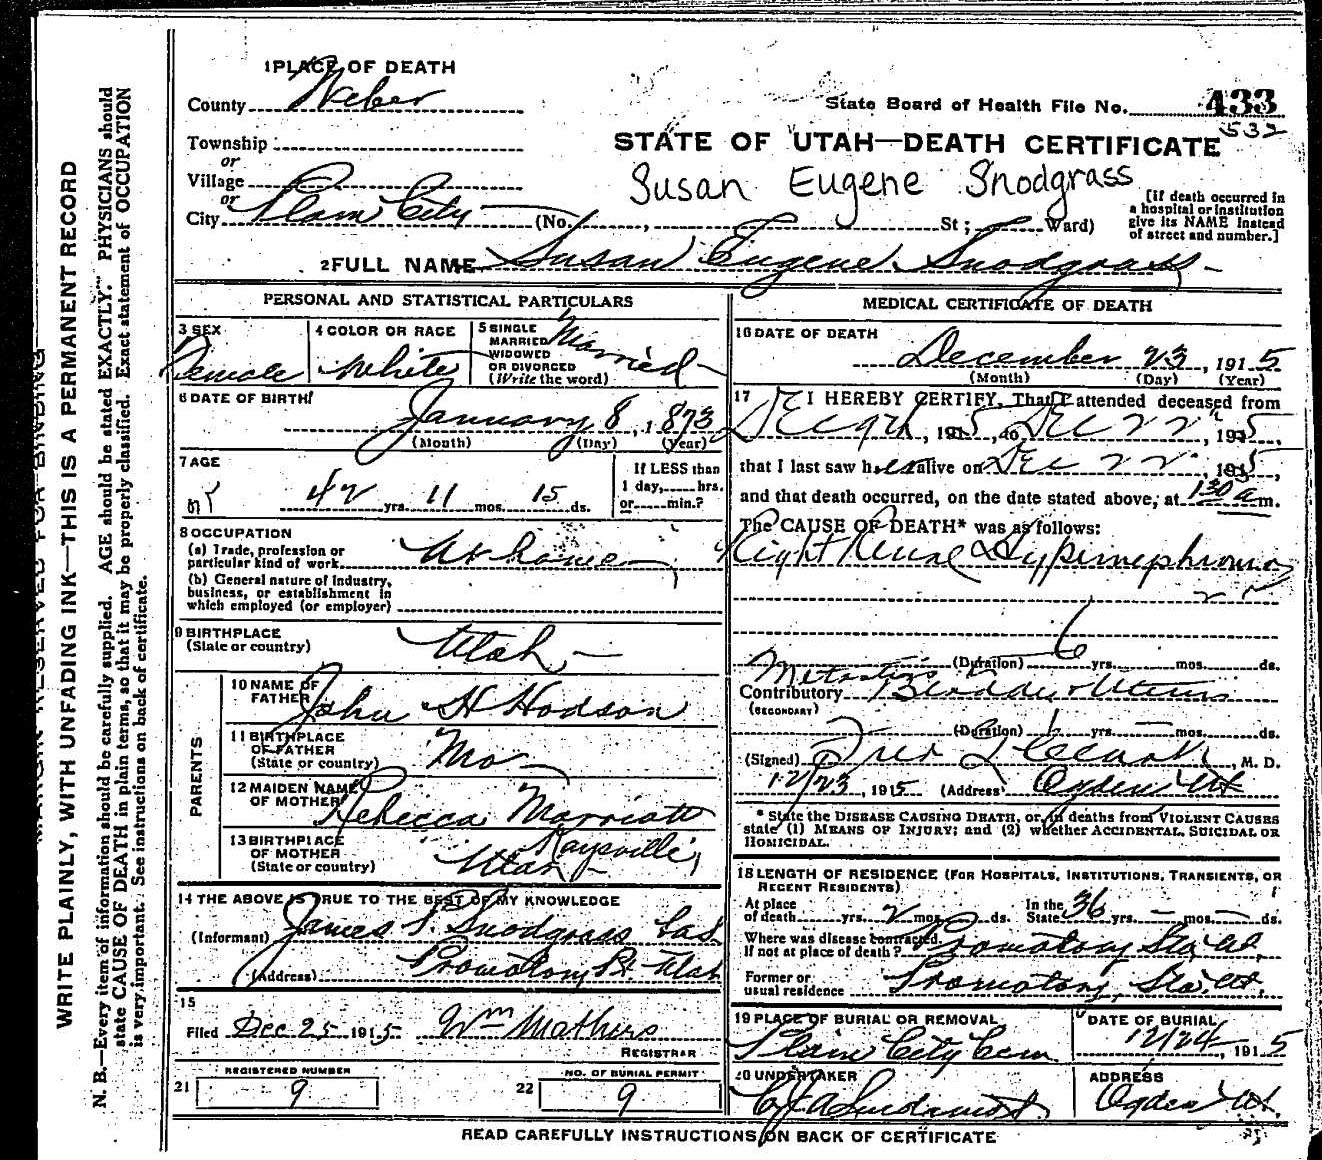 1 PLACE OF DEATH
County Weber
State Board of Health File No. 433
532
Township
or
Village
or
City Plain City (No. , St; Ward)
STATE OF UTAH—DEATH CERTIFICATE
Susan Eugene Snodgrass
[if death occurred in
a hospital or institution
give its NAME instead
of street and number.]
2 FULL NAME Susan Eugene Snodgrass
PERSONAL AND STATISTICAL PARTICULARS
3 SEX
Female
4 COLOR OR RACE
White
5 SINGLE
MARRIED
WIDOWED
OR DIVORCED
(Write the word)
Married
6 DATE OF BIRTH
January 8, 1873
(Month) (Day) (Year)
7 AGE
42 yrs. 11 mos. 15 ds.
If LESS than
1 day, hrs.
or min.?
8 OCCUPATION
(a) Trade, profession or
particular kind of work At home
(b) General nature of industry,
business, or establishment in
which employed (or employer)
9 BIRTHPLACE
(State or country) Utah
PARENTS
10 NAME OF
FATHER John H Hodson
11 BIRTHPLACE
OF FATHER
(State or country) Mo
12 MAIDEN NAME
OF MOTHER Rebecca Marriott
13 BIRTHPLACE
OF MOTHER
(State or country) Kaysville, Utah
14 THE ABOVE IS TRUE TO THE BEST OF MY KNOWLEDGE
(Informant) James S. Snodgrass
(Address) Promotory Pt Utah
15
Filed Dec 25 1915 Wm Mathers
REGISTRAR
21 REGISTERED NUMBER
9
22 NO. OF BURIAL PERMIT
9
MEDICAL CERTIFICATE OF DEATH
16 DATE OF DEATH
December 23, 1915
(Month) (Day) (Year)
17 I HEREBY CERTIFY, That I attended deceased from
Dec 9th, 1915, to Dec 22nd, 1915,
that I last saw her alive on Dec 22, 1915,
and that death occurred, on the date stated above, at 1 30 a m.
The CAUSE OF DEATH* was as follows:
Right Renal Hypernephroma
(Duration) 6 yrs. mos. ds.
Metastasis
Contributory Bladder & Uterus
(SECONDARY)
(Duration) 1 yrs. mos. ds.
(Signed) Fred, M. D.
12/23, 1915 (Address) Ogden Ut
* State the DISEASE CAUSING DEATH, or, in deaths from VIOLENT CAUSES
state (1) MEANS OF INJURY; and (2) whether ACCIDENTAL, SUICIDAL OR
HOMICIDAL.
18 LENGTH OF RESIDENCE (FOR HOSPITALS, INSTITUTIONS, TRANSIENTS, OR
RECENT RESIDENTS)
At place
of death yrs. 2 mos. ds.
In the
State 36 yrs. mos. ds.
Where was disease contracted.
If not at place of death? Promotory Sta. Ut,
Former or
usual residence Promotory, Sta. Ut.
19 PLACE OF BURIAL OR REMOVAL
Plain City Cem
DATE OF BURIAL
12/24, 1915
20 UNDERTAKER
ADDRESS
Ogden Ut.
READ CAREFULLY INSTRUCTIONS ON BACK OF CERTIFICATE
MARGIN RESERVED FOR BINDING
WRITE PLAINLY, WITH UNFADING INK—THIS IS A PERMANENT RECORD
N. B.—Every item of information should be carefully supplied. AGE should be stated EXACTLY. PHYSICIANS should
state CAUSE OF DEATH in plain terms, so that it may be properly classified. Exact statement of OCCUPATION
is very important. See instructions on back of certificate.